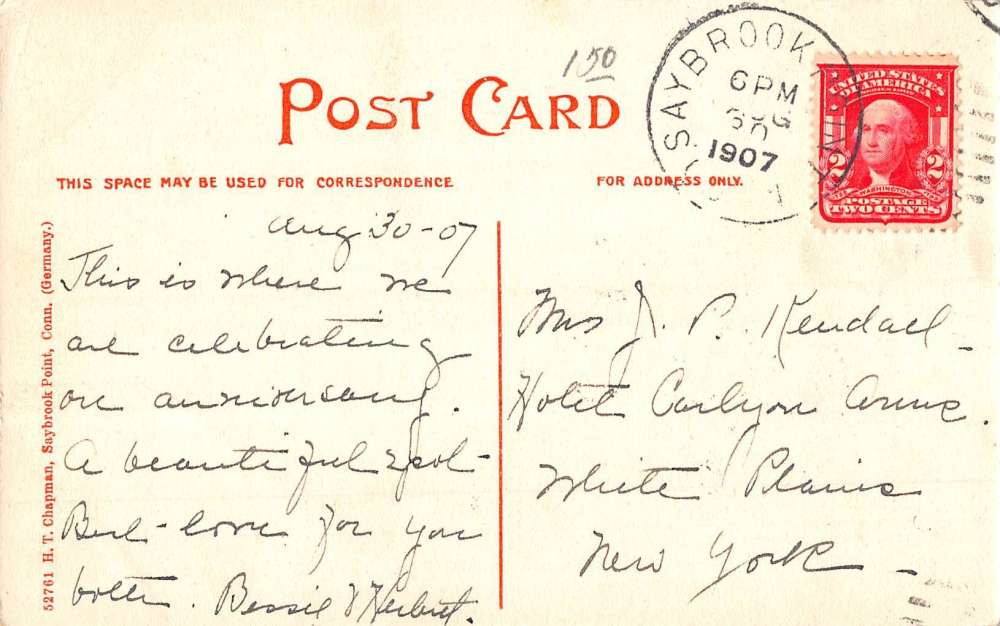 150
POST CARD
SAYBROOK
6 PM
AUG
30
1907
UNITED STATES
OF AMERICA
2 2
WASHINGTON
POSTAGE
TWO CENTS
THIS SPACE MAY BE USED FOR CORRESPONDENCE
FOR ADDRESS ONLY.
52761 H. T. Chapman, Saybrook Point, Conn. (Germany.)
Aug 30-07
This is where we
are celebrating
our anniversary.
A beautiful spot-
Best love for you
both. Bessie & Herbert.
Mrs J. P. Kendall -
Hotel Carlyon Arms.
White Plains
New York -